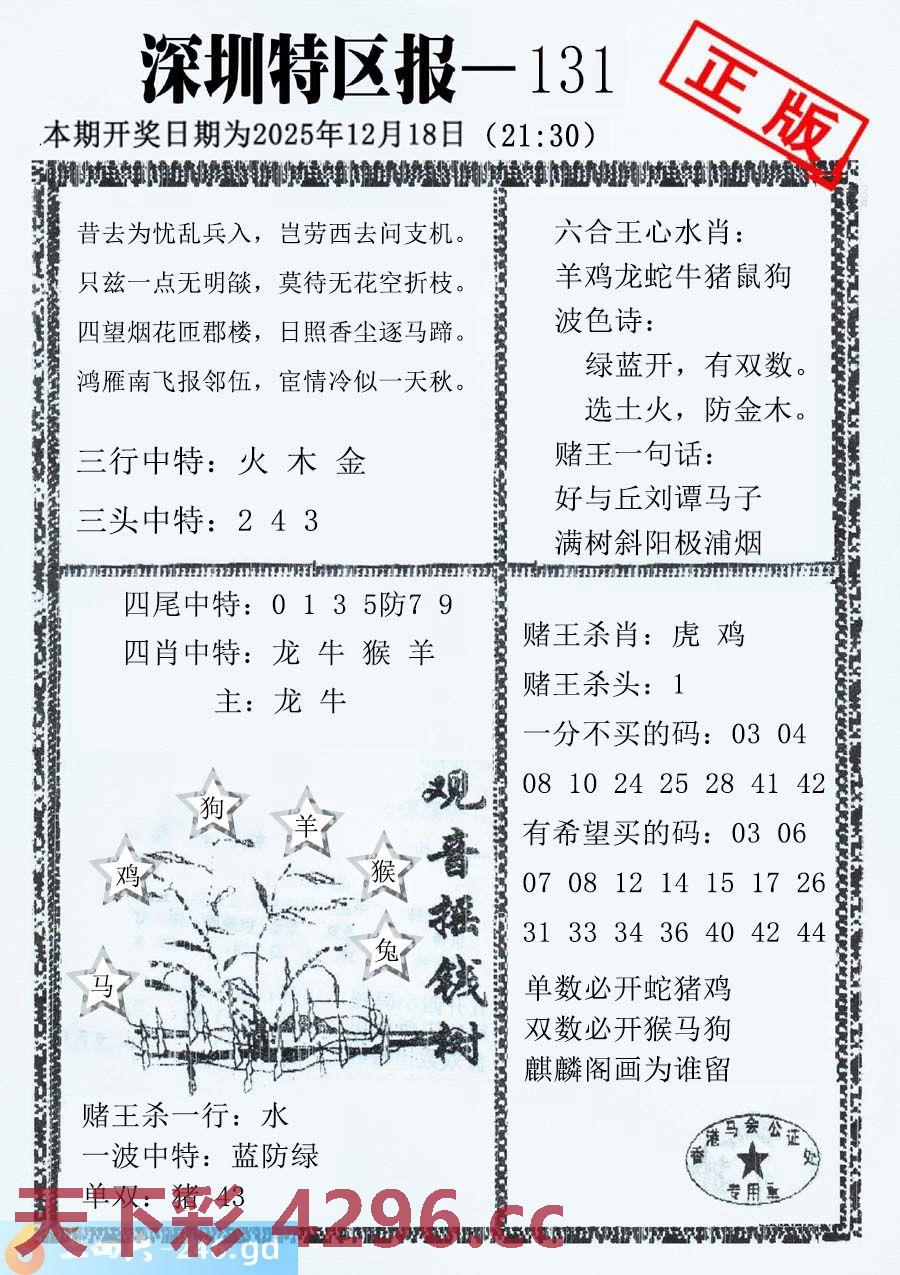 深圳特区报—131
正版
本期开奖日期为2025年12月18日（21:30）
昔去为忧乱兵入，岂劳西去问支机。
只兹一点无明燄，莫待无花空折枝。
四望烟花匝郡楼，日照香尘逐马蹄。
鸿雁南飞报邻伍，宦情冷似一天秋。
三行中特：火 木 金
三头中特：2 4 3
六合王心水肖：
羊鸡龙蛇牛猪鼠狗
波色诗：
绿蓝开，有双数。
选土火，防金木。
赌王一句话：
好与丘刘谭马子
满树斜阳极浦烟
四尾中特：0 1 3 5防7 9
四肖中特：龙 牛 猴 羊
主：龙 牛
狗
羊
鸡
猴
兔
马
观音摇钱树
赌王杀一行：水
一波中特：蓝防绿
单双：猪 43
赌王杀肖：虎 鸡
赌王杀头：1
一分不买的码：03 04
08 10 24 25 28 41 42
有希望买的码：03 06
07 08 12 14 15 17 26
31 33 34 36 40 42 44
单数必开蛇猪鸡
双数必开猴马狗
麒麟阁画为谁留
香港马会公证处
专用章
天下彩 4296.cc